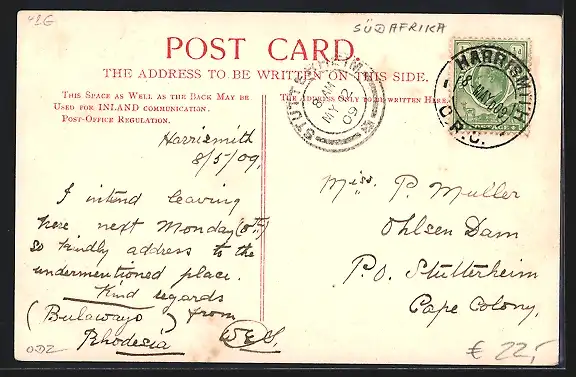 41G
SÜDAFRIKA
POST CARD.
THE ADDRESS TO BE WRITTEN ON THIS SIDE.
THIS SPACE AS WELL AS THE BACK MAY BE
USED FOR INLAND COMMUNICATION.
POST-OFFICE REGULATION.
THE ADDRESS ONLY TO BE WRITTEN HERE.
HARRISMITH
O.R.C.
AM
MY 12
09
Harrismith
8/5/09.
I intend leaving
here next Monday
so kindly address to the
undermentioned place.
Kind regards
(Bulawayo) from
Rhodesia
Miss. P. Muller
Ohlsen Dam
P.O. Stutterheim
Cape Colony.
ODZ
€ 22,-